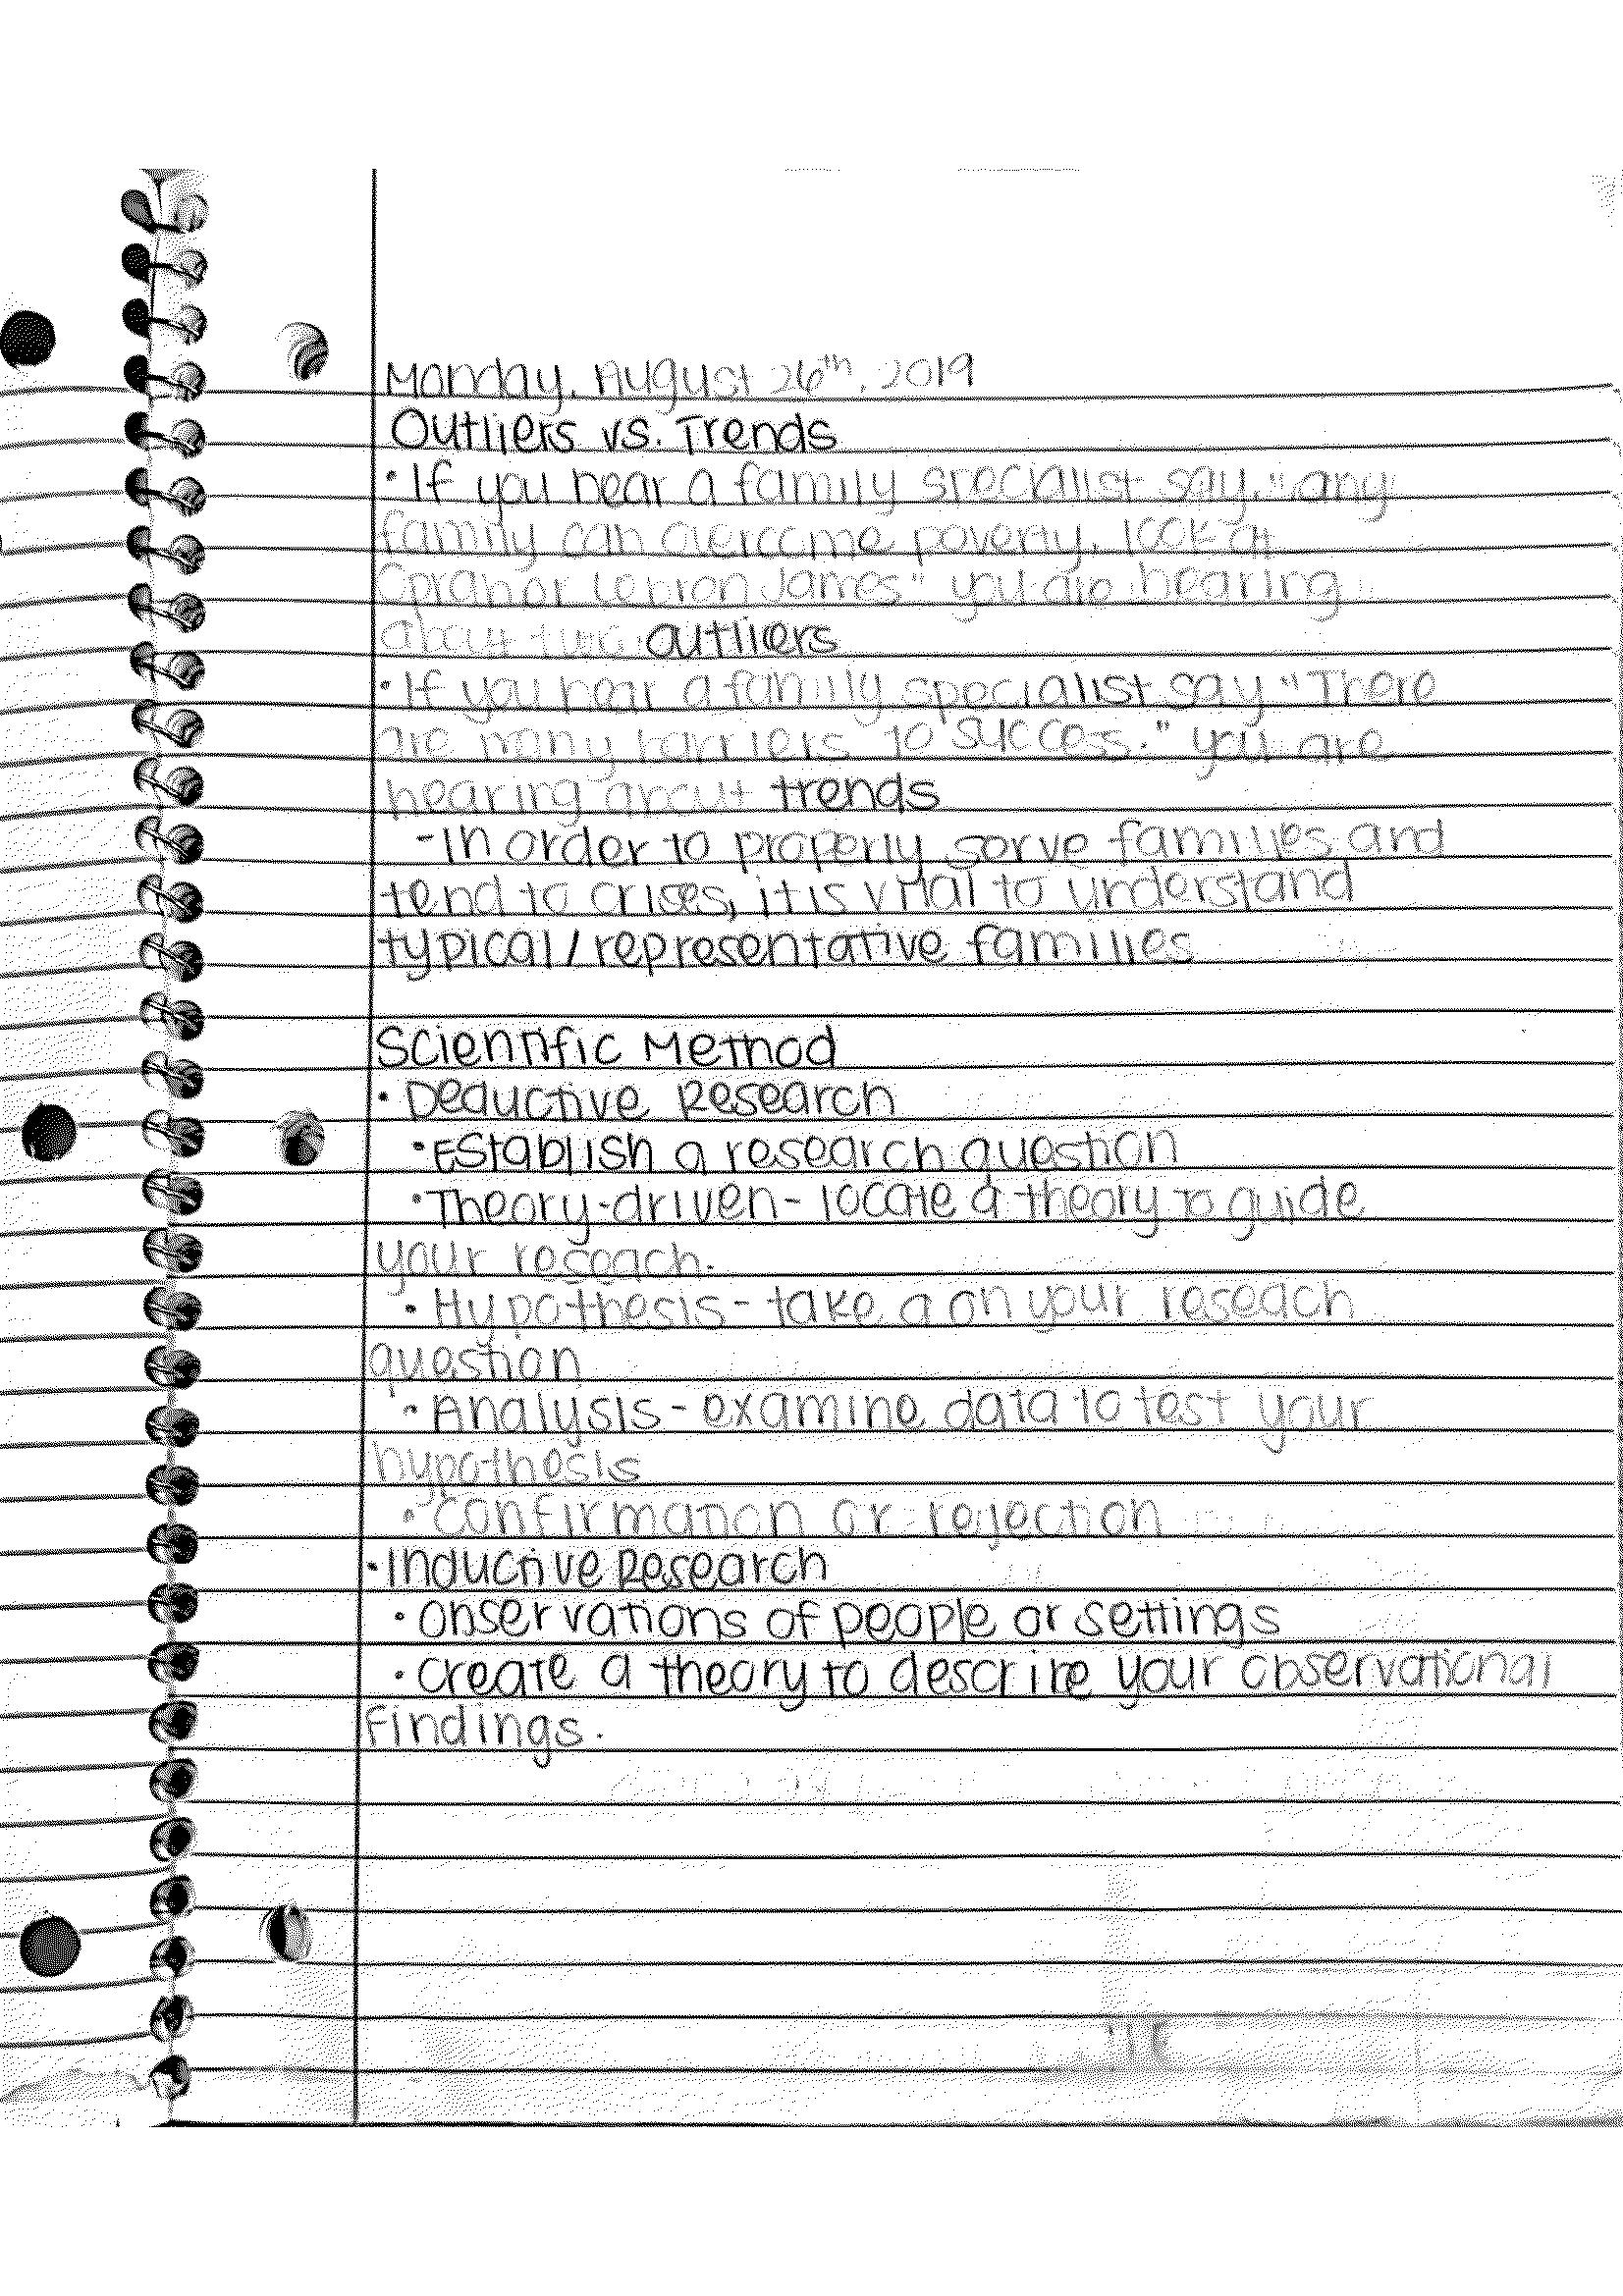 Monday, August 26th, 2019
Outliers vs. Trends
• If you hear a family specialist say, "any
family can overcome poverty, look at
Oprah or Lebron James" you are hearing
about two outliers
• If you hear a family specialist say "There
are many barriers to success." you are
hearing about trends
- In order to properly serve families and
tend to crises, it is vital to understand
typical/representative families
Scientific Method
• Deductive Research
• Establish a research question
• Theory-driven - locate a theory to guide
your reseach.
• Hypothesis - take a on your reseach
question
• Analysis - examine data to test your
hypothesis
• Confirmation or rejection
• Inductive Research
• Observations of people or settings
• Create a theory to describe your observational
findings.